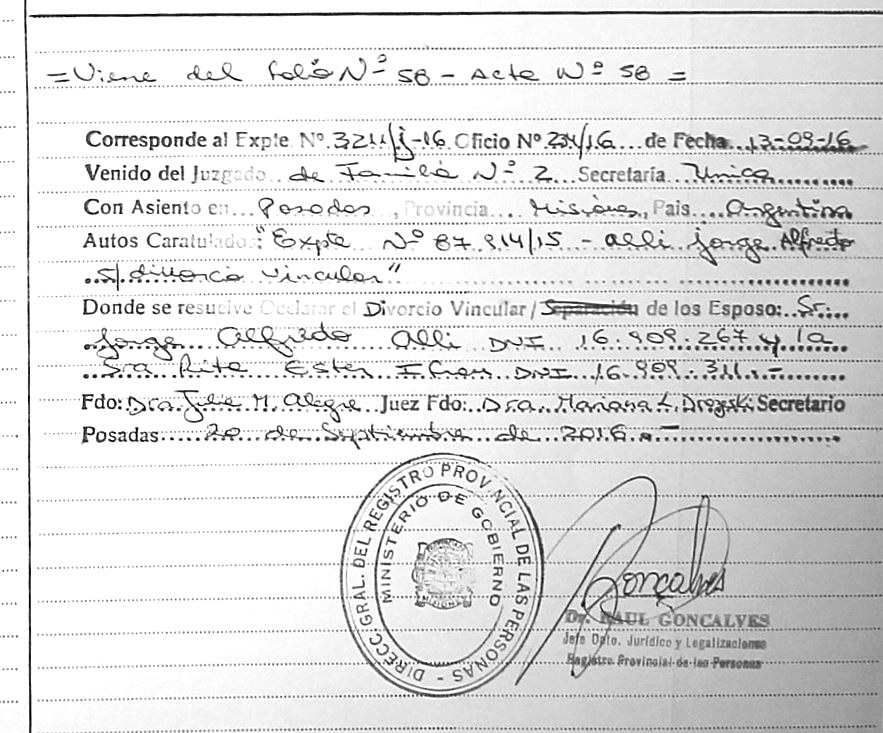 = Viene del folio Nº 58 - Acta Nº 58 =
Corresponde al Expte Nº 3211/j-16 Oficio Nº 234/16 de Fecha 13-09-16
Venido del Juzgado de Familia Nº 2 Secretaría Unica
Con Asiento en Posadas, Provincia Misiones, Pais Argentina
Autos Caratulados: "Expte Nº 87.914/15 - Alli Jorge Alfredo
s/divorcio vincular"
Donde se resuelve Declarar el Divorcio Vincular / Separación de los Esposo: Sr.
Jorge Alfredo Alli DNI 16.909.267 y la
Sra Rita Ester DNI 16.909.311.-
Fdo: Dra Julia M. Alegre Juez Fdo: Dra. Mariana L. Secretario
Posadas 20 de Septiembre de 2016.-
DIRECC. GRAL. DEL REGISTRO PROVINCIAL DE LAS PERSONAS -
MINISTERIO DE GOBIERNO
Goncalves
Dr. RAUL GONCALVES
Jefe Dpto. Jurídico y Legalizaciones
Registro Provincial de las Personas